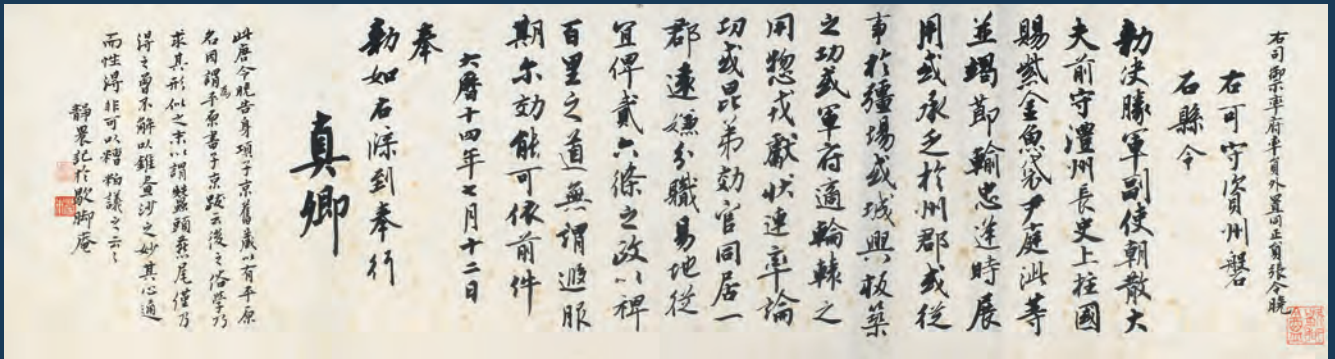 右司禦率府率員外置同正員張令曉
右可守資州磐
石縣令
勅決勝軍副使朝散大
夫前守澧州長史上柱國
賜紫金魚袋尹庭泚等
並竭節輸忠逢時展
用或承乏於州郡或從
事於疆場或城興板築
之功或軍府適輪轅之
用惣戎獻狀連率論
切或昆弟効官同居一
郡遠嫌分職易地從
宜俾貳六條之政以裨
百里之道無謂遐服
期尒効能可依前件
大曆十四年七月十二日
奉
勅如右牒到奉行
真卿
此唐令晚告身項子京舊藏以有平原
名因謂為平原書子京跋云後之俗學乃
求其形似之末以謂蠶頭燕尾僅乃
得之曾不解以錐畫沙之妙其心通
而性得非可以糟粕議之云々
靜農記於歇腳庵